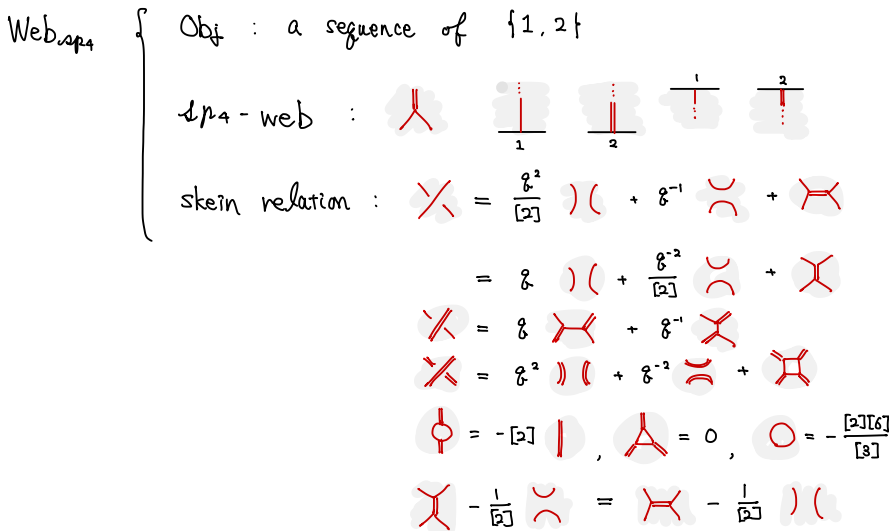 Web_sp4 { Obj : a sequence of {1, 2}
sp4 - web : 1 2 1 2
skein relation : = q^2/[2] + q^-1 +
= q + q^-2/[2] +
= q + q^-1
= q^2 + q^-2 +
= -[2] , = 0 , = - [2][6]/[3]
- 1/[2] = - 1/[2]